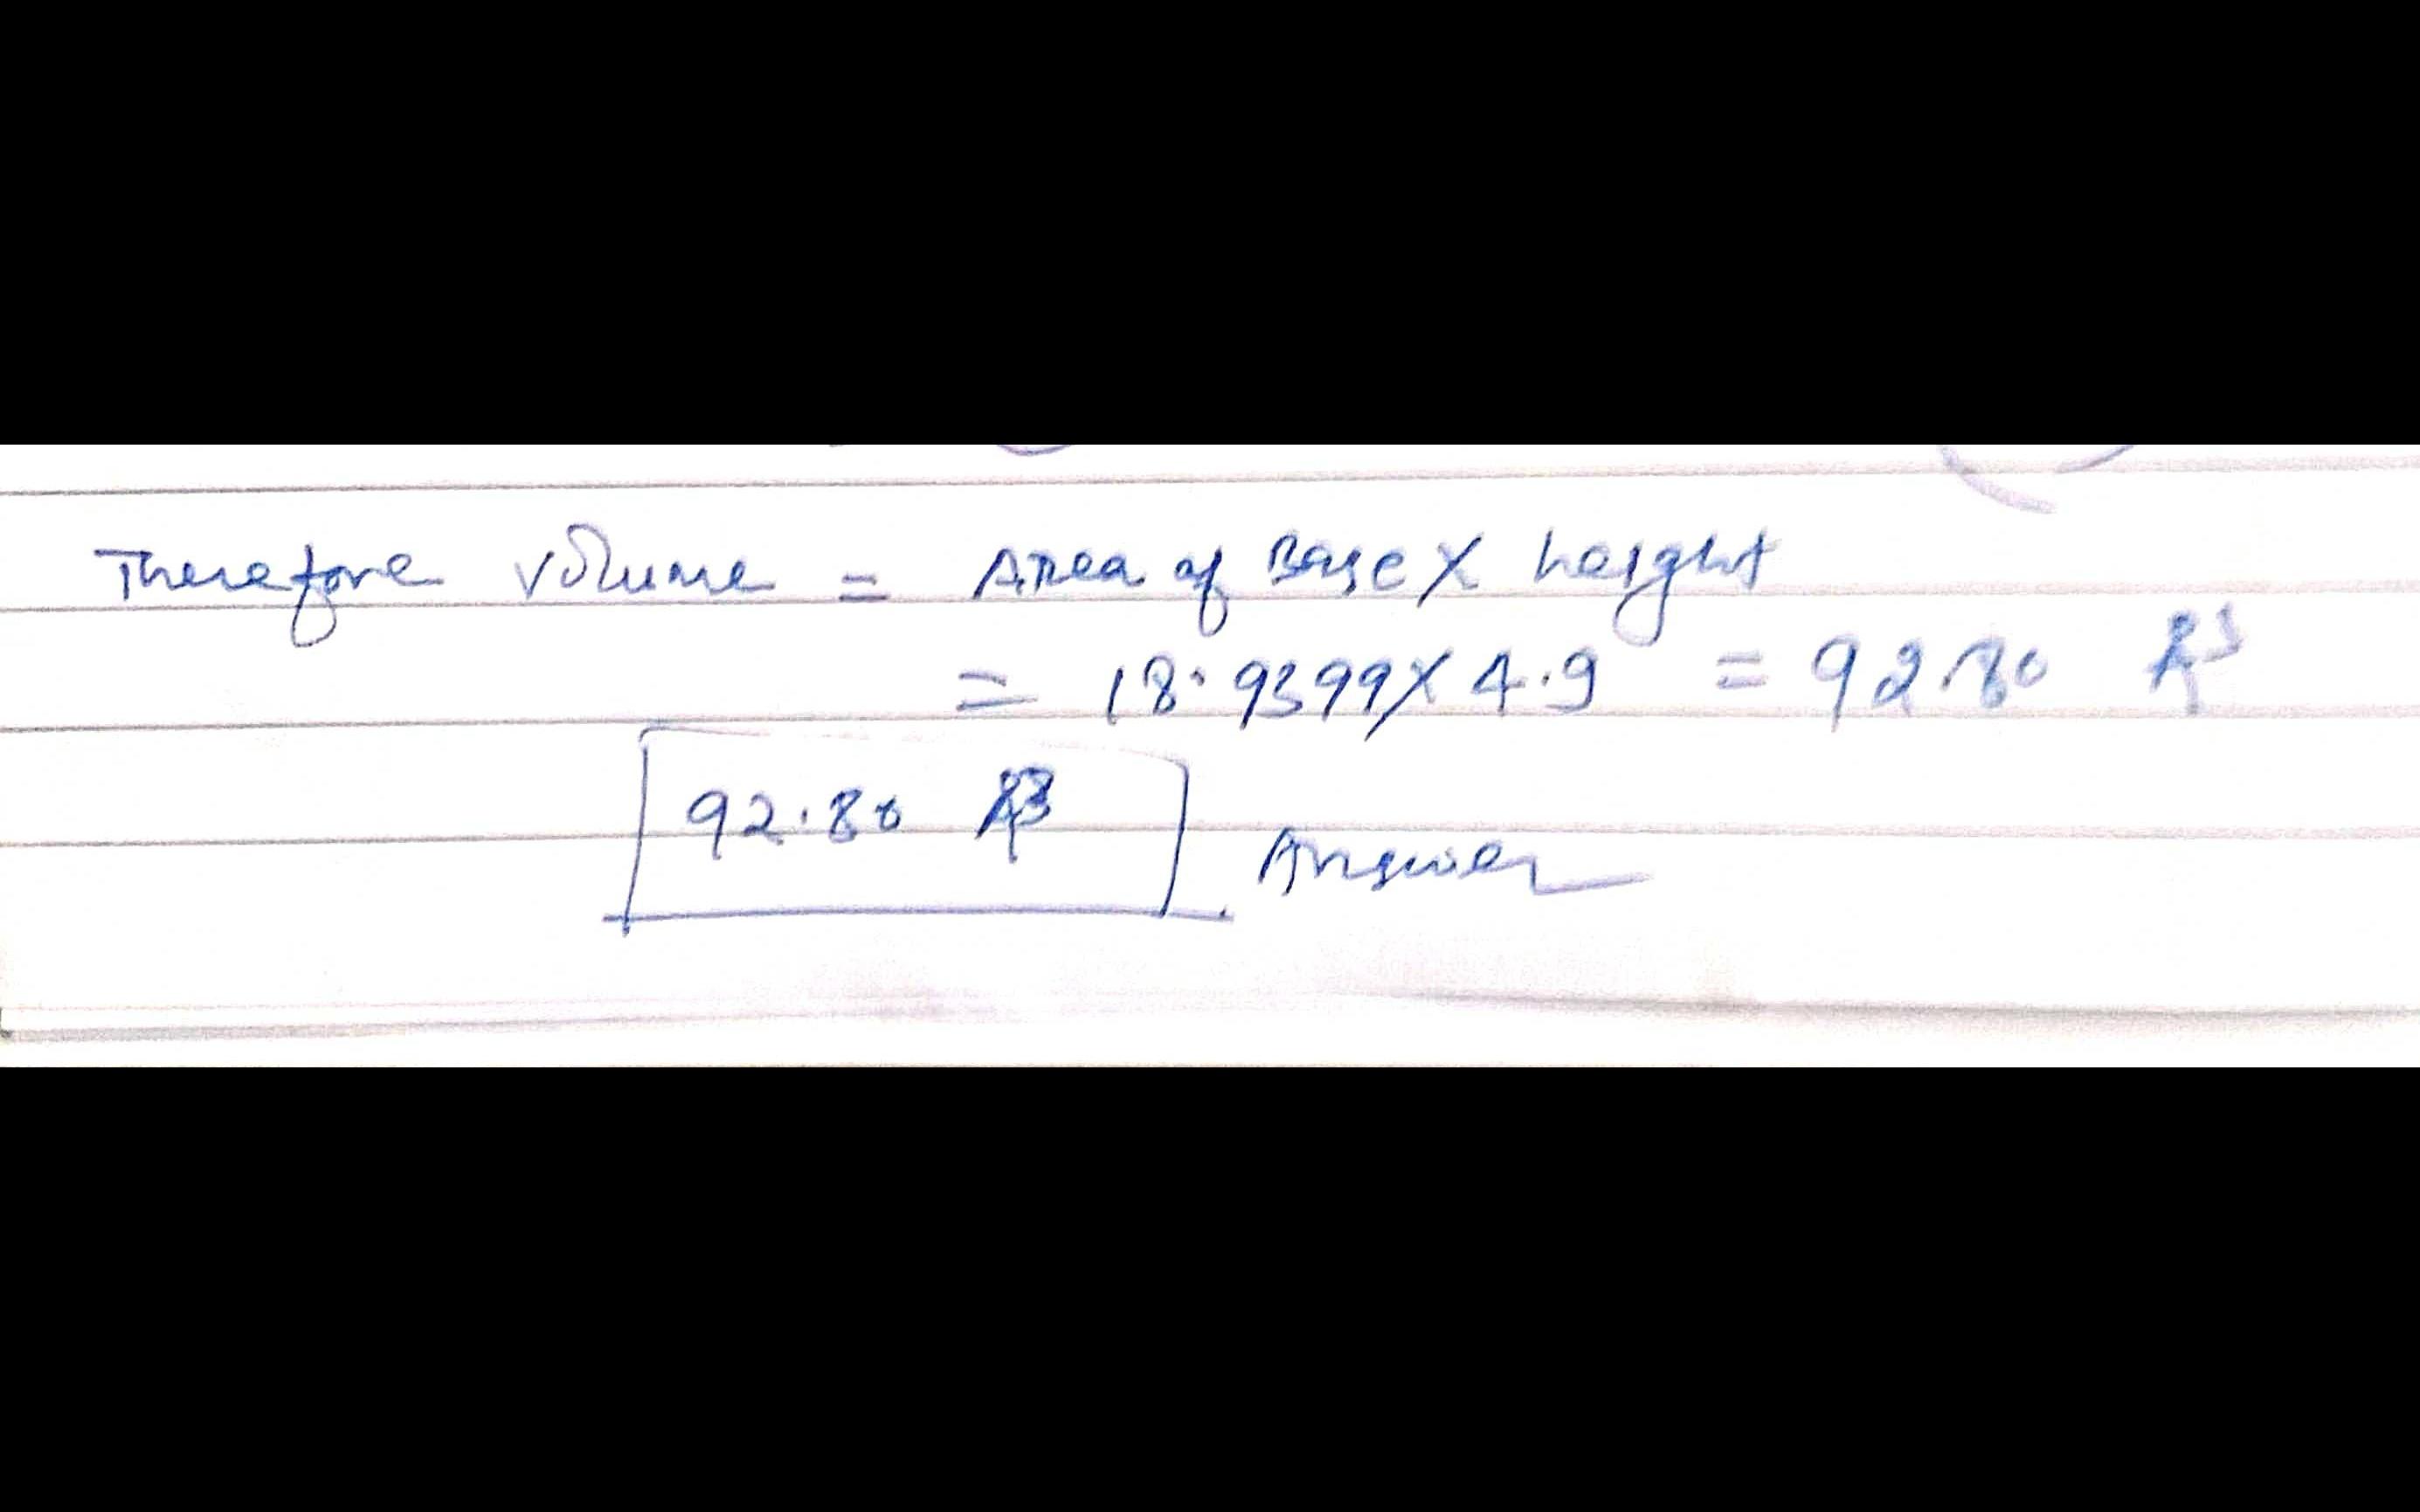 Therefore volume = Area of Base X height
= 18.9399 X 4.9 = 92.80 ft³
92.80 ft³ Answer